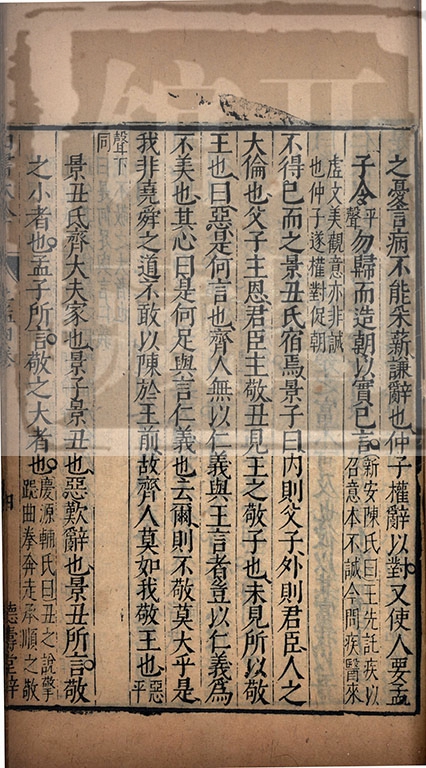 之憂言病不能采薪謙辭也仲子權辭以對又使人要孟
子令平聲勿歸而造朝以實己言新安陳氏曰王先託疾以召意本不誠令問疾醫來
虛文美觀意亦非誠也仲子遂權對促朝
不得已而之景丑氏宿焉景子曰內則父子外則君臣人之
大倫也父子主恩君臣主敬丑見王之敬子也未見所以敬
王也曰惡是何言也齊人無以仁義與王言者豈以仁義為
不美也其心曰是何足與言仁義也云爾則不敬莫大乎是
我非堯舜之道不敢以陳於王前故齊人莫如我敬王也惡平
聲下同
景丑氏齊大夫家也景子景丑也惡歎辭也景丑所言敬
之小者也孟子所言敬之大者也慶源輔氏曰丑之說擎跽曲拳奔走承順之敬
德壽堂梓